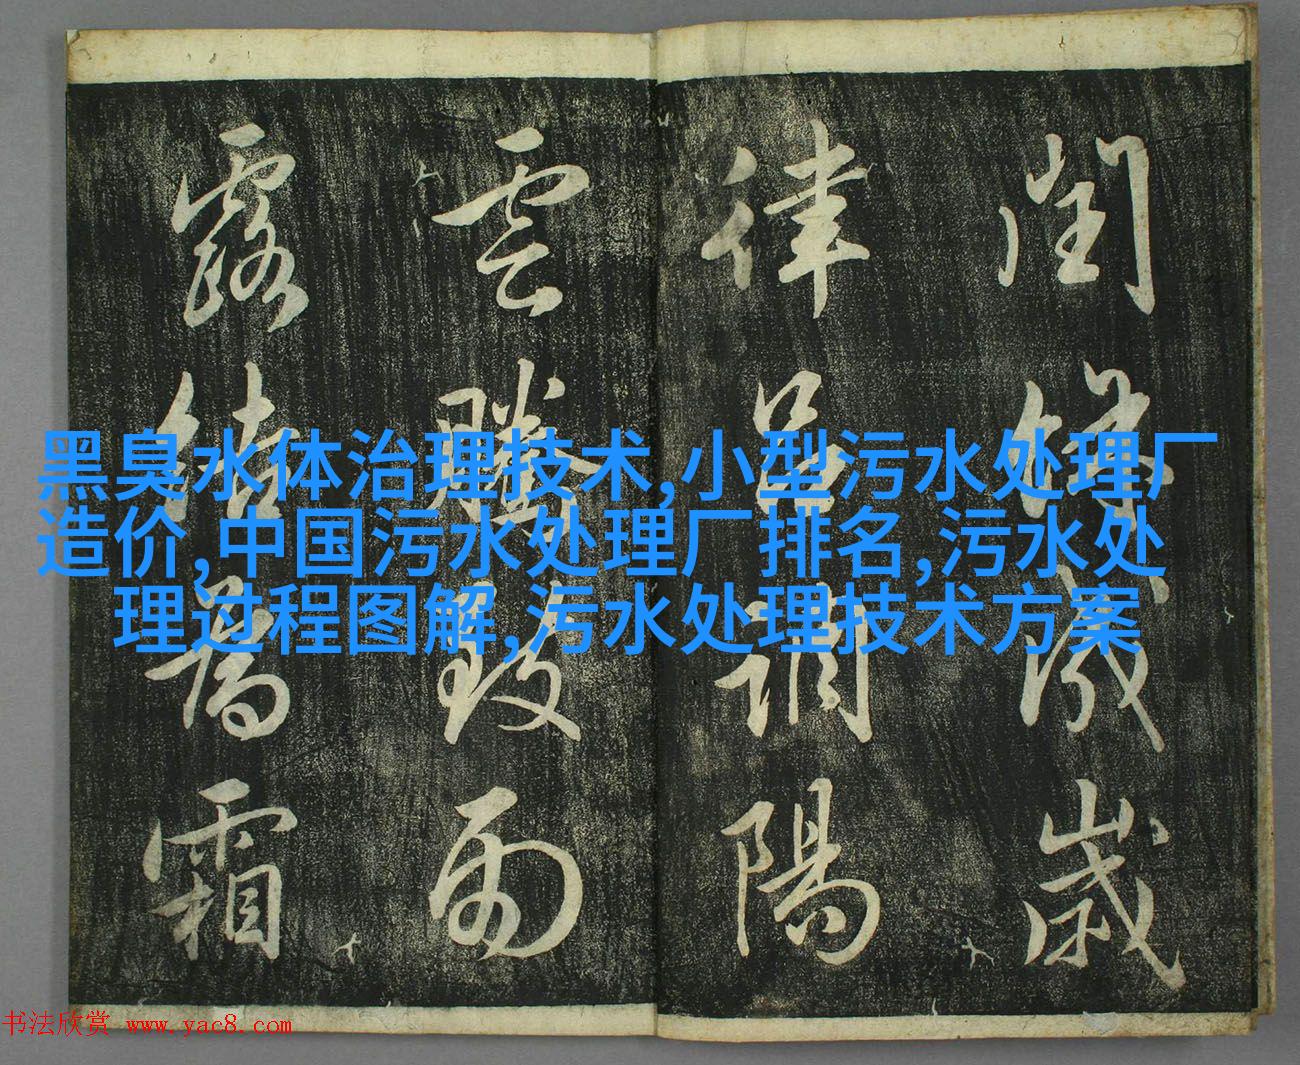 閏餘成歲
律呂調陽
雲騰致雨
露結為霜
黑臭水体治理技术,小型污水处理厂
造价,中国污水处理厂排名,污水处
理过程图解,污水处理技术方案
书法欣赏 www.yac8.com